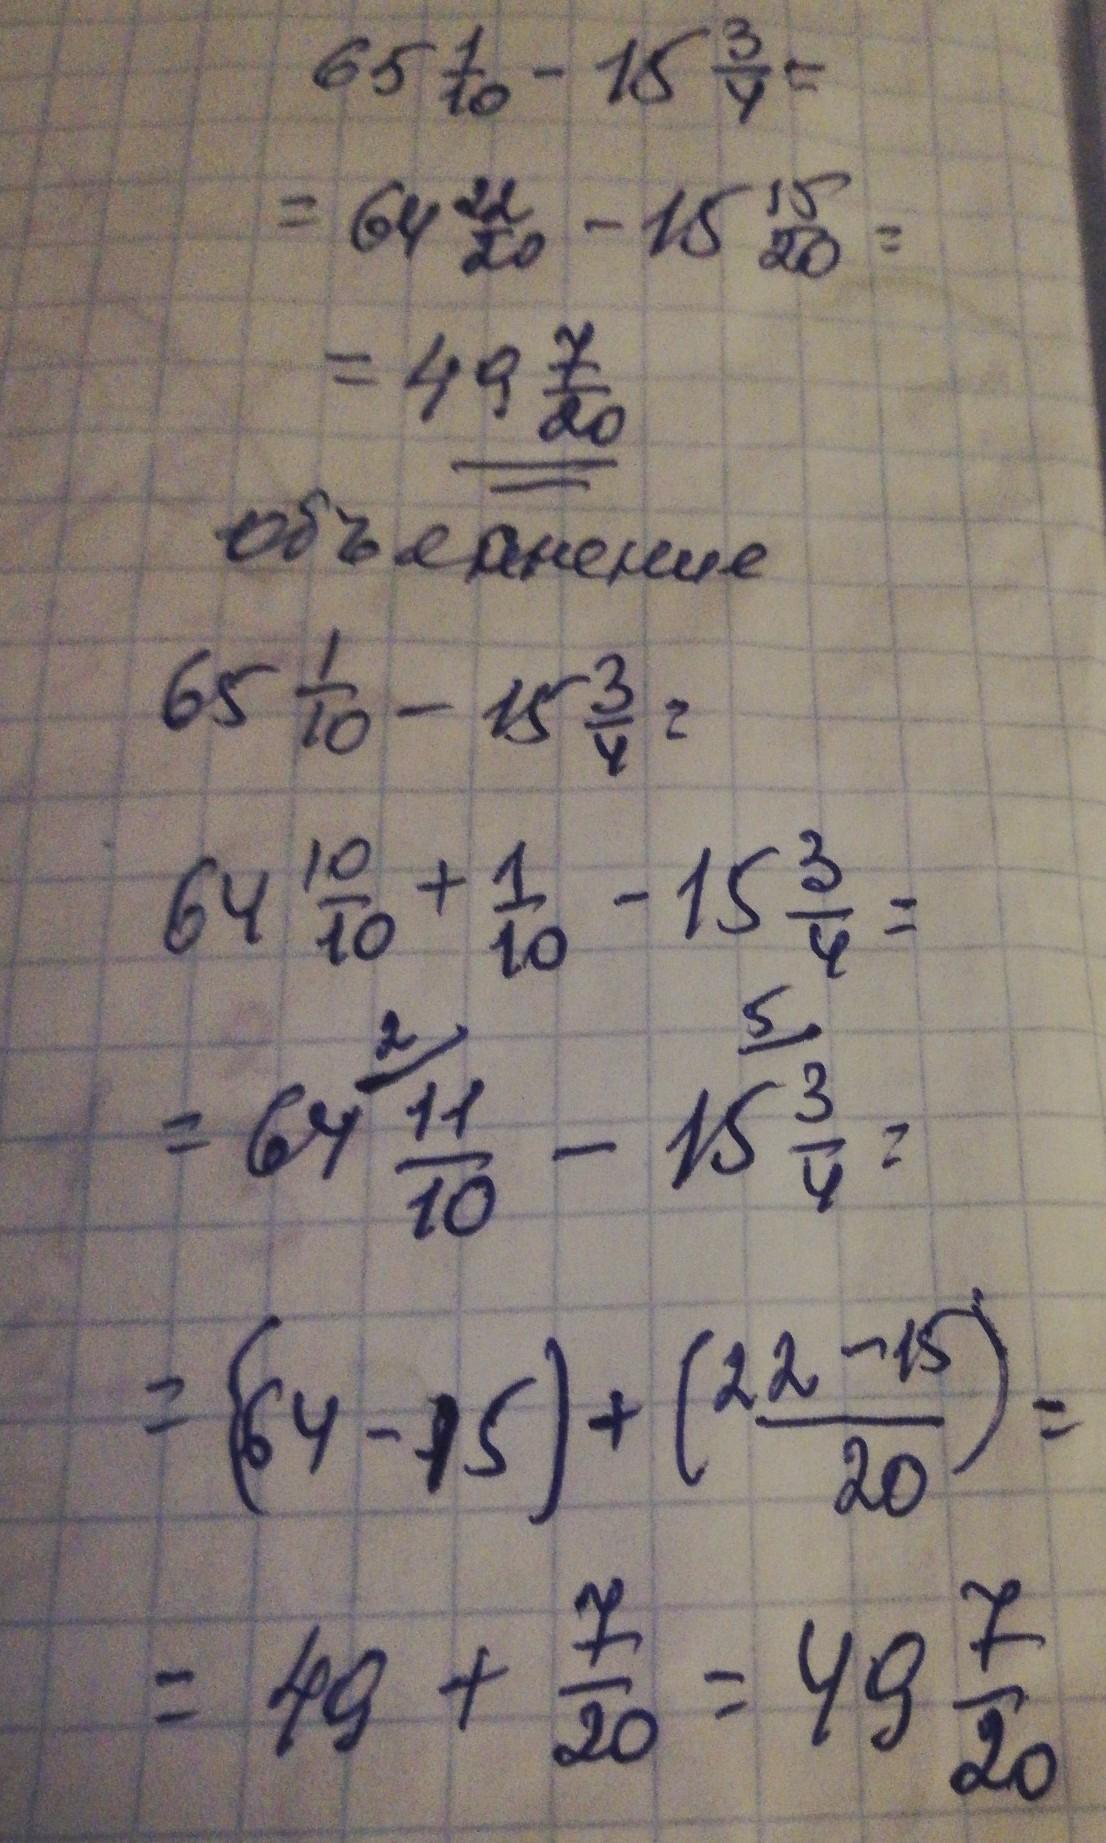 65 1/10 - 15 3/4 =
= 64 22/20 - 15 15/20 =
= 49 7/20
объяснение
65 1/10 - 15 3/4 =
64 10/10 + 1/10 - 15 3/4 =
2 5
= 64 11/10 - 15 3/4 =
= (64 - 15) + (22 - 15 / 20) =
= 49 + 7/20 = 49 7/20